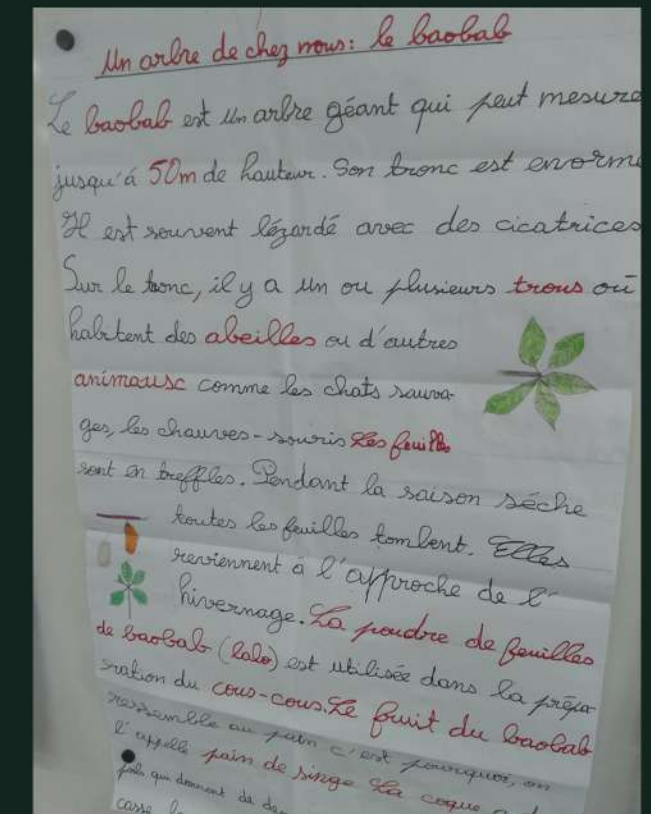 Un arbre de chez nous: le baobab
Le baobab est un arbre géant qui peut mesure
jusqu'à 50m de hauteur. Son tronc est enorme
Il est souvent lézardé avec des cicatrices
Sur le tronc, il y a un ou plusieurs trous où
habitent des abeilles ou d'autres
animaux comme les chats sauva-
ges, les chauves-souris Les feuilles
sont en treffles. Pendant la saison sèche
toutes les feuilles tombent. Elles
reviennent à l'approche de l'
hivernage. La poudre de feuilles
de baobab (lalo) est utilisée dans la prépa-
ration du cous-cous. Le fruit du baobab
ressemble au pain c'est pourquoi, on
l'appelle pain de singe La coque a
poils qui donnent de
casse